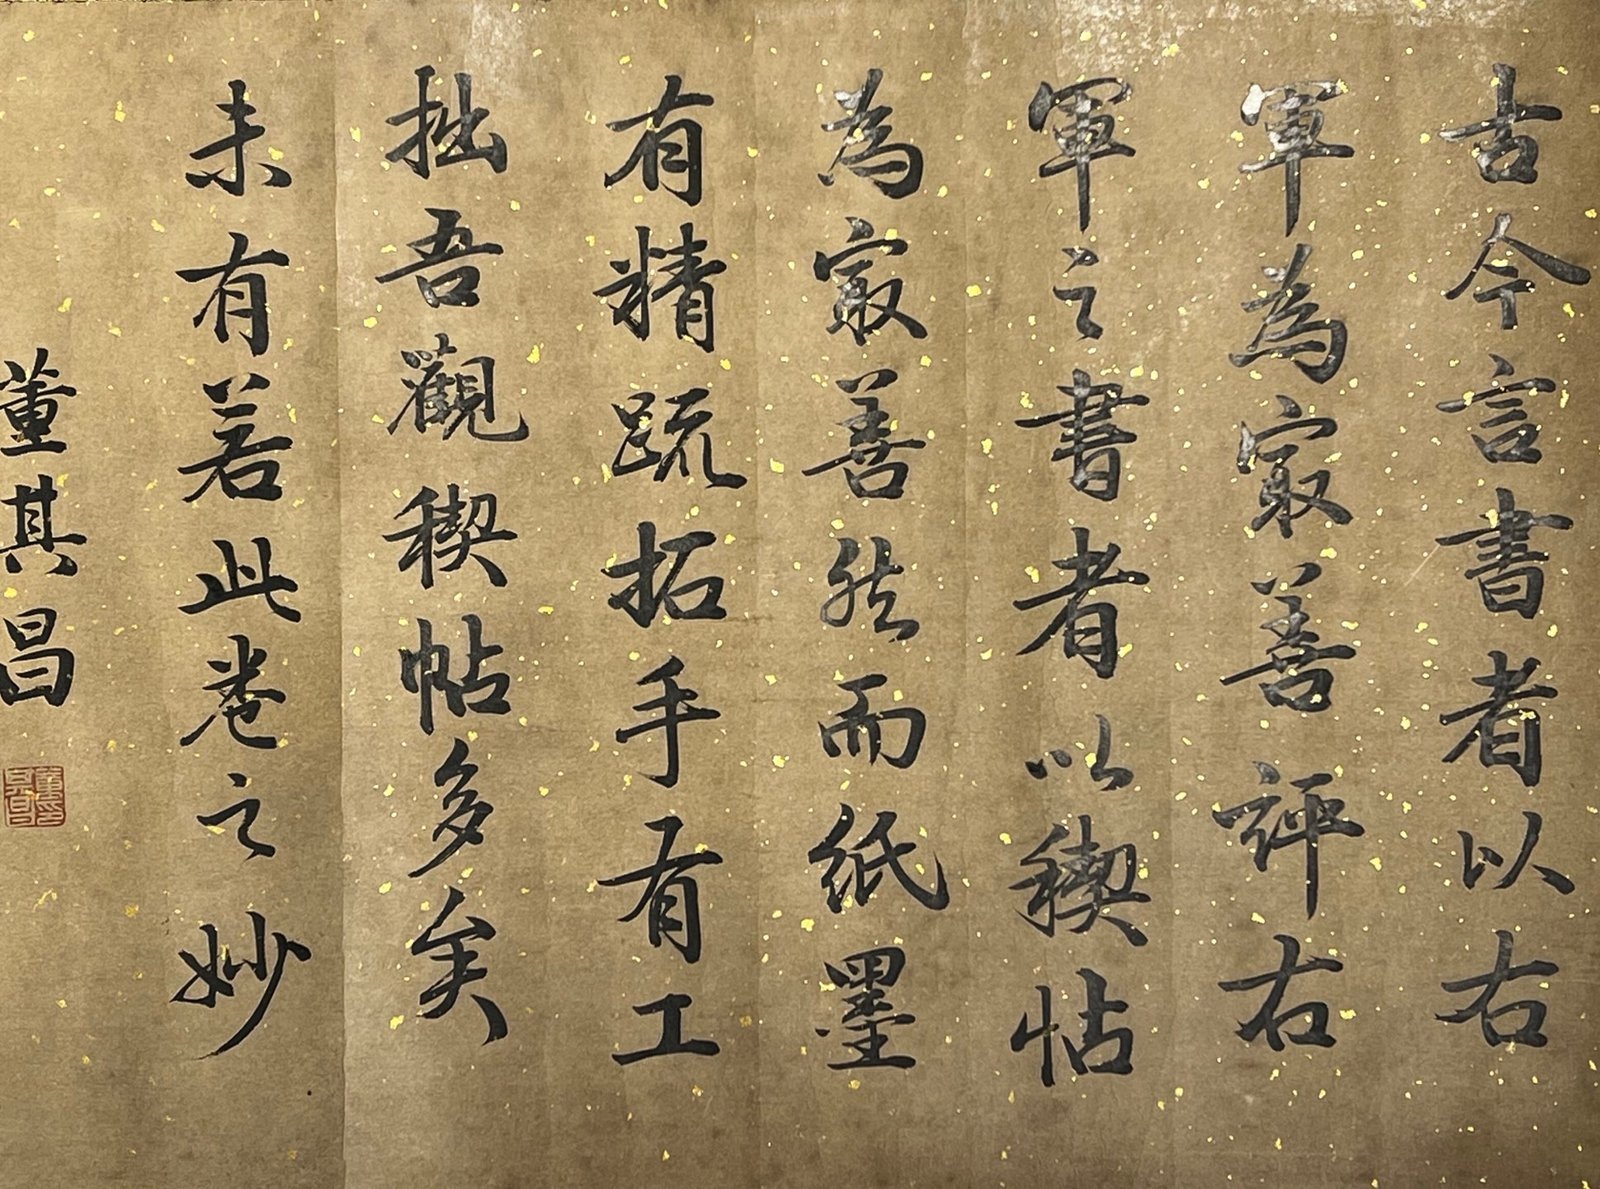 古今言書者以右
軍為㝡善評右
軍之書者以稧帖
為㝡善然而紙墨
有精疏拓手有工
拙吾觀稧帖多矣
未有若此卷之妙
董其昌